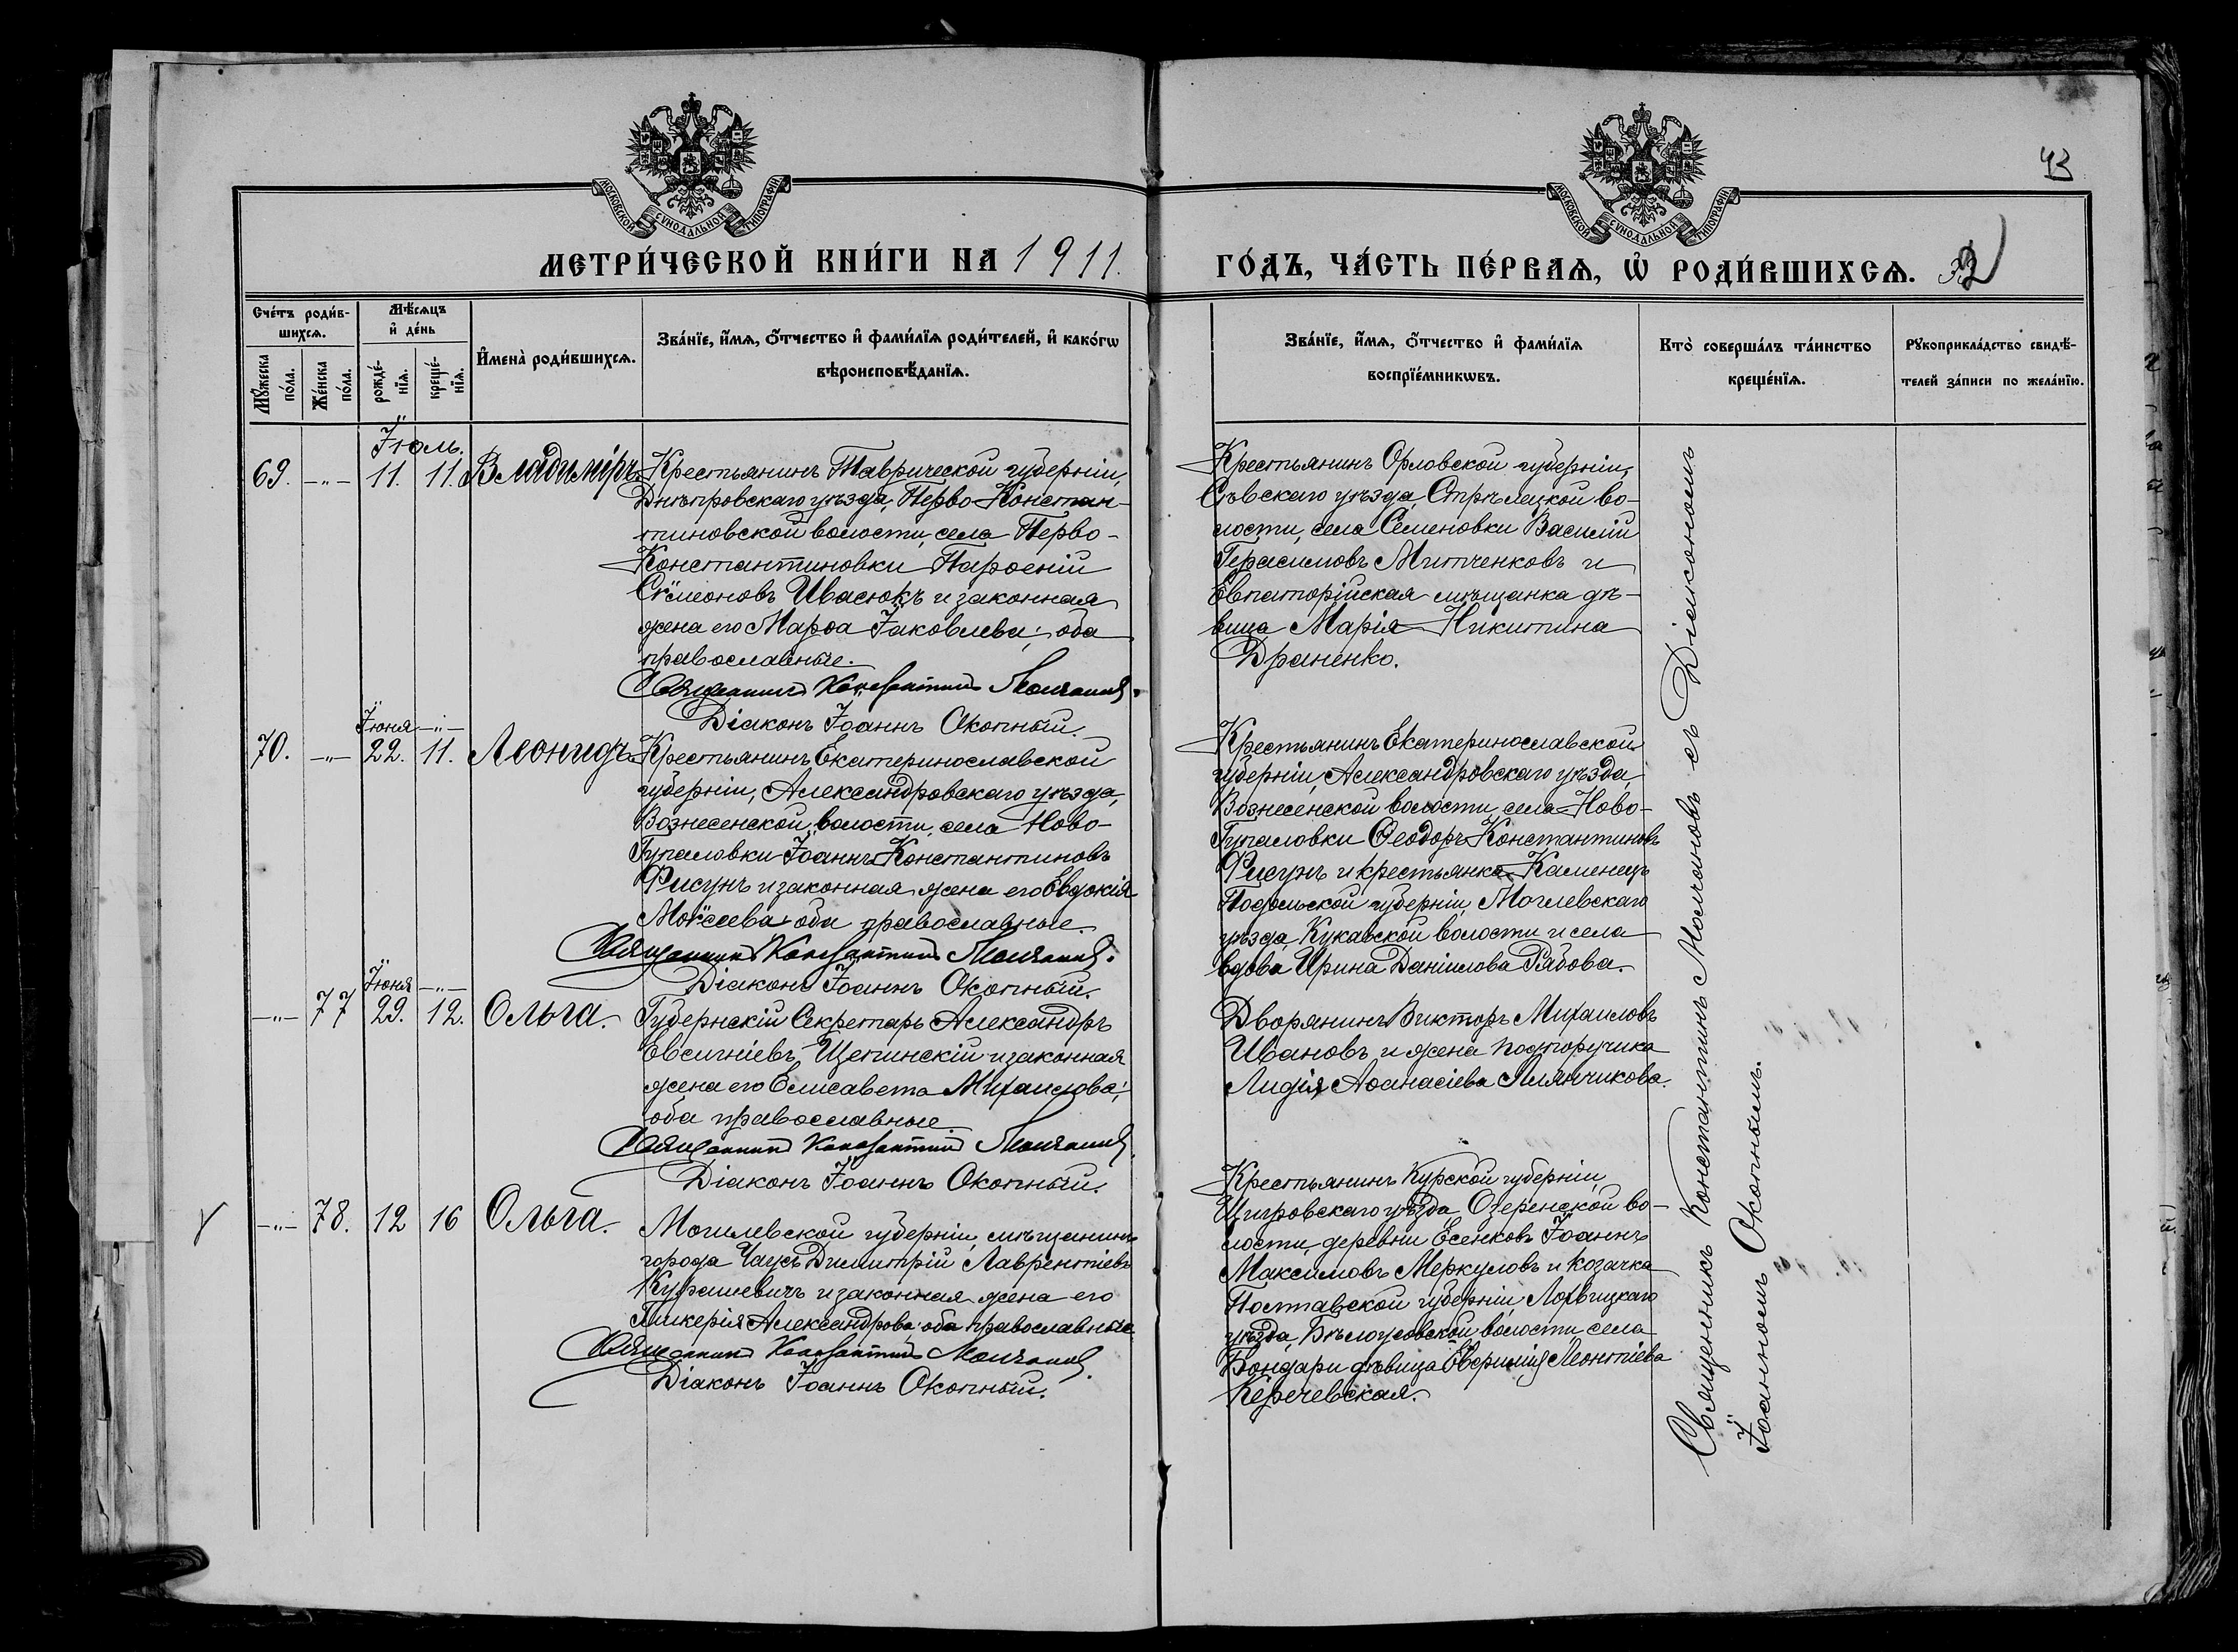 43
МОСКОВСКОЙ СУНОДАЛЬНОЙ ТИПОГРАФІИ
МОСКОВСКОЙ СУНОДАЛЬНОЙ ТИПОГРАФІИ
МЕТРИ́ЧЕСКОЙ КНИ́ГИ НА 1911.
ГО́ДЪ, ЧА́СТЬ ПЕ́РВАѦ, Ѡ҆ РОДИ́ВШИХСѦ.
Сче́тъ роди́в-
шихсѧ.
Мꙋ́жеска по́ла.
Же́нска по́ла.
Мѣ́сѧцъ
и҆ де́нь
рожде́-
нїѧ.
креще́-
нїѧ.
И҆мена̀ роди́вшихсѧ.
Зва́нїе, и҆́мѧ, ѻ҆́тчество и҆ фами́лїѧ роди́телей, и҆ како́гѡ
вѣроисповѣ́данїѧ.
Зва́нїе, и҆́мѧ, ѻ҆́тчество и҆ фами́лїѧ
воспрїе́мникѡвъ.
Кто̀ соверша́лъ та́инство
креще́нїѧ.
Рꙋкоприкла́дство свидѣ́-
телей за́писи по жела́нїю.
Іюль.
69. -"- 11. 11. Владиміръ
Крестьянинъ Таврической губерніи,
Днѣпровскаго уѣзда, Перво-Констан-
тиновской волости, села Перво-
Константиновки Парѳеній
Сѵмеоновъ Ивасюкъ и законная
жена его Марѳа Іаковлева; оба
православные.
Священникъ Константинъ Молчановъ.
Діаконъ Іоаннъ Окопный.
Крестьянинъ Орловской губерніи,
Сѣвскаго уѣзда, Стрѣлецкой во-
лости, села Семеновки Василій
Герасимовъ Митченковъ и
Евпаторійская мѣщанка дѣ-
вица Марія Никитина
Драненко.
Іюня -"-
70. -"- 22. 11. Леонидъ
Крестьянинъ Екатеринославской
губерніи, Александровскаго уѣзда,
Вознесенской волости, села Ново-
Гупаловки Іоаннъ Константиновъ
Фисунъ и законная жена его Евдокія
Моѵсеева оба православные.
Священникъ Константинъ Молчановъ.
Діаконъ Іоаннъ Окопный.
Крестьянинъ Екатеринославской
губерніи, Александровскаго уѣзда,
Вознесенской волости, села Ново-
Гупаловки Ѳеодоръ Константиновъ
Фисунъ и крестьянка Каменецъ
Подольской губерніи, Могилевскаго
уѣзда, Кукавской волости и села
вдова Ирина Даніилова Рябова.
Іюня -"-
-"- 77 29. 12. Ольга.
Губернскій Секретарь Александръ
Евсигніевъ Щепинскій и законная
жена его Елисавета Михаилова;
оба православные.
Священникъ Константинъ Молчановъ.
Діаконъ Іоаннъ Окопный.
Дворянинъ Викторъ Михаиловъ
Ивановъ и жена подпоручика
Лидія Аѳанасіева Плянчикова.
-"- 78. 12 16 Ольга.
Могилевской губерніи, мѣщанинъ
города Чаусъ Димитрій Лаврентіевъ
Курашевичъ и законная жена его
Гликерія Александрова; оба православные
Священникъ Константинъ Молчановъ.
Діаконъ Іоаннъ Окопный.
Крестьянинъ Курской губерніи,
Щигровскаго уѣзда, Озеренской во-
лости, деревни Есенковъ Іоаннъ
Максимовъ Меркуловъ и козачка
Полтавской губерніи, Лохвицкаго
уѣзда, Бѣлоусовской волости, села
Бондари дѣвица Евфимія Леонтіева
Керечевская.
Священникъ Константинъ Молчановъ съ Діакономъ
Іоанномъ Окопнымъ.